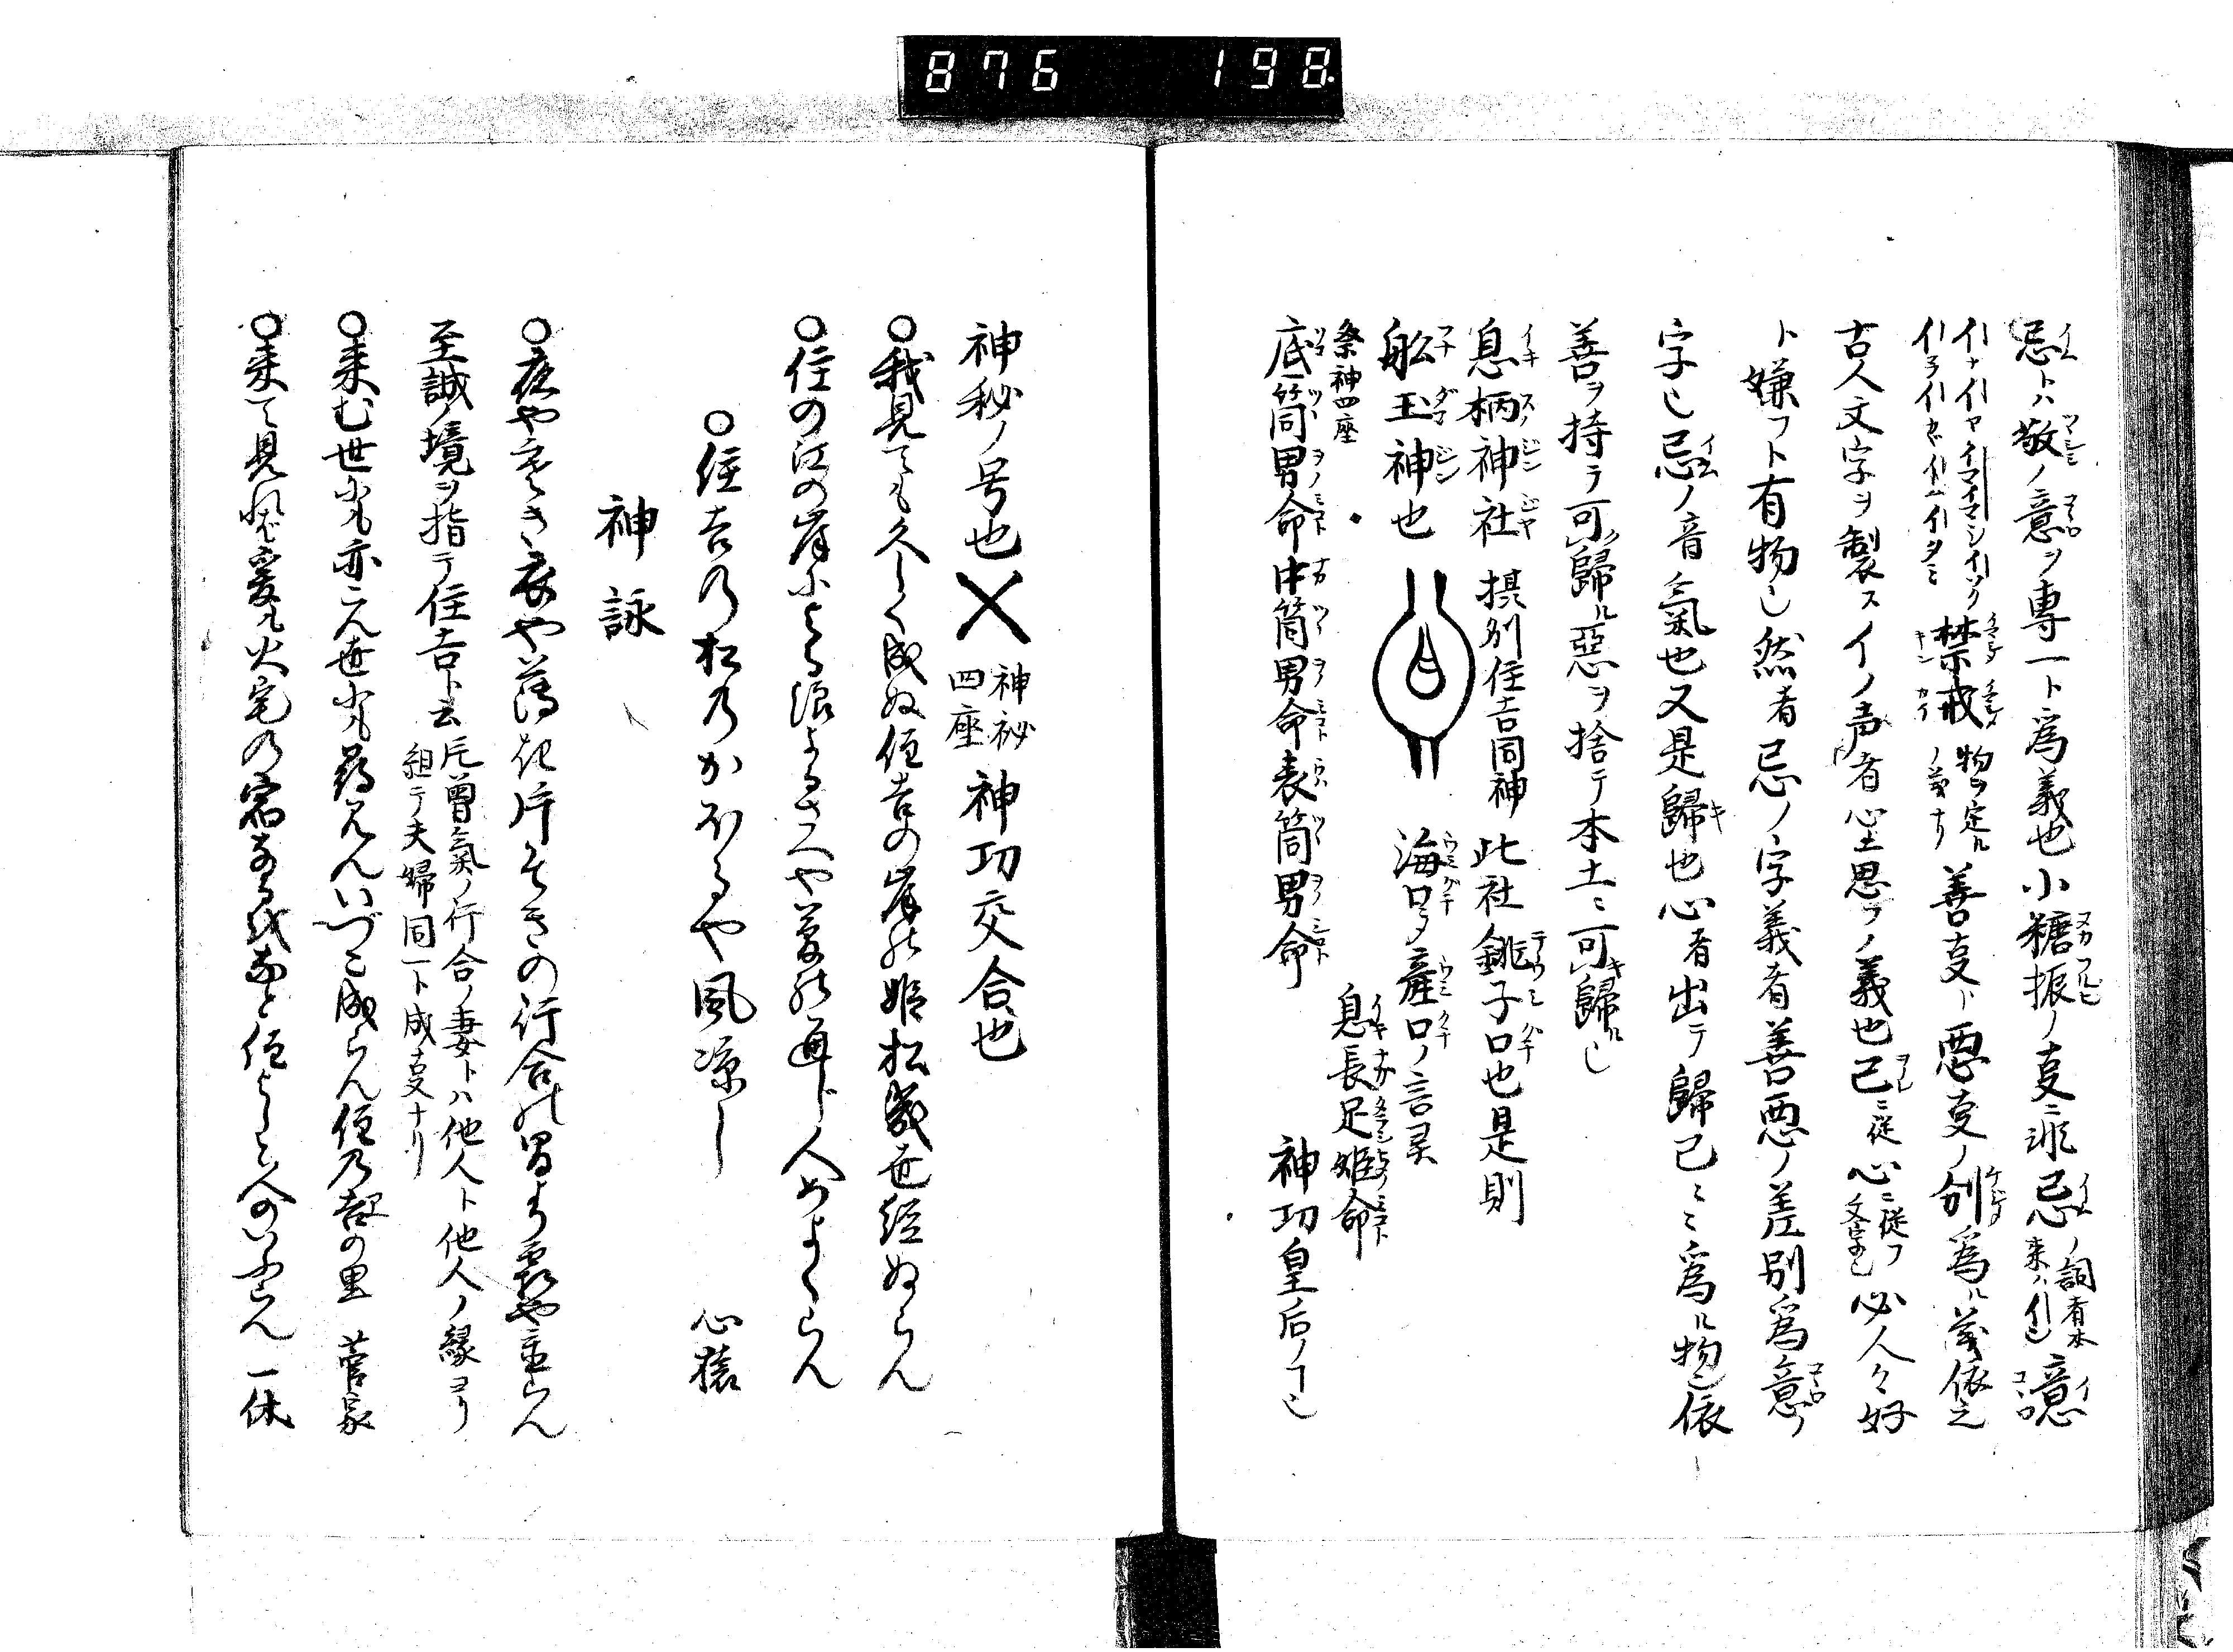 876 198
忌トハ敬ノ意ヲ専一ト為義也小糠振ノ支ニ非忌ノ詞者本来ハイ也憶
禁戒 物ヲ定ルノ義ナリ 善支ト悪支ノ別為ル義依之
古人文字ヲ製スイノ声者心ニ思フノ義也己ニ従心ニ従フ文字也必人々好
ト嫌フト有物也然者忌ノ字義者善悪ノ差別為意ノ
字也忌ノ音氣也又是歸也心者出テ歸己ミミ為ル物也依
善ヲ持テ可歸ル悪ヲ捨テ本土ニ可歸ル也
息柄神社 摂州住吉同神 此社銚子口也是則
舩玉神也 海口ヲ産口ノ言灵
祭神四座 息長足姫命
底筒男命中筒男命表筒男命 神功皇后ノ也
神秘ノ号也 神祕四座 神功交合也
○我見ても久しく成ぬ住吉の岸の姫松幾世経ぬらん
○住の江の岸による浪よるさへや夢の通ひ人めよくらん
○住吉の松乃かほるや風涼し 心猿
神詠
○夜やさむき衣や薄き片そきの行合の間より霜や置らん
至誠ノ境ヲ指テ住吉ト云 曽氣ノ行合ノ妻トハ他人ト他人ノ縁ヨリ組テ夫婦同一ト成支ナリ
いづこ成らん住乃吉の里 菅家
○来て見れば爰も火宅の宿なるを なと住よしと人のいふらん 一休